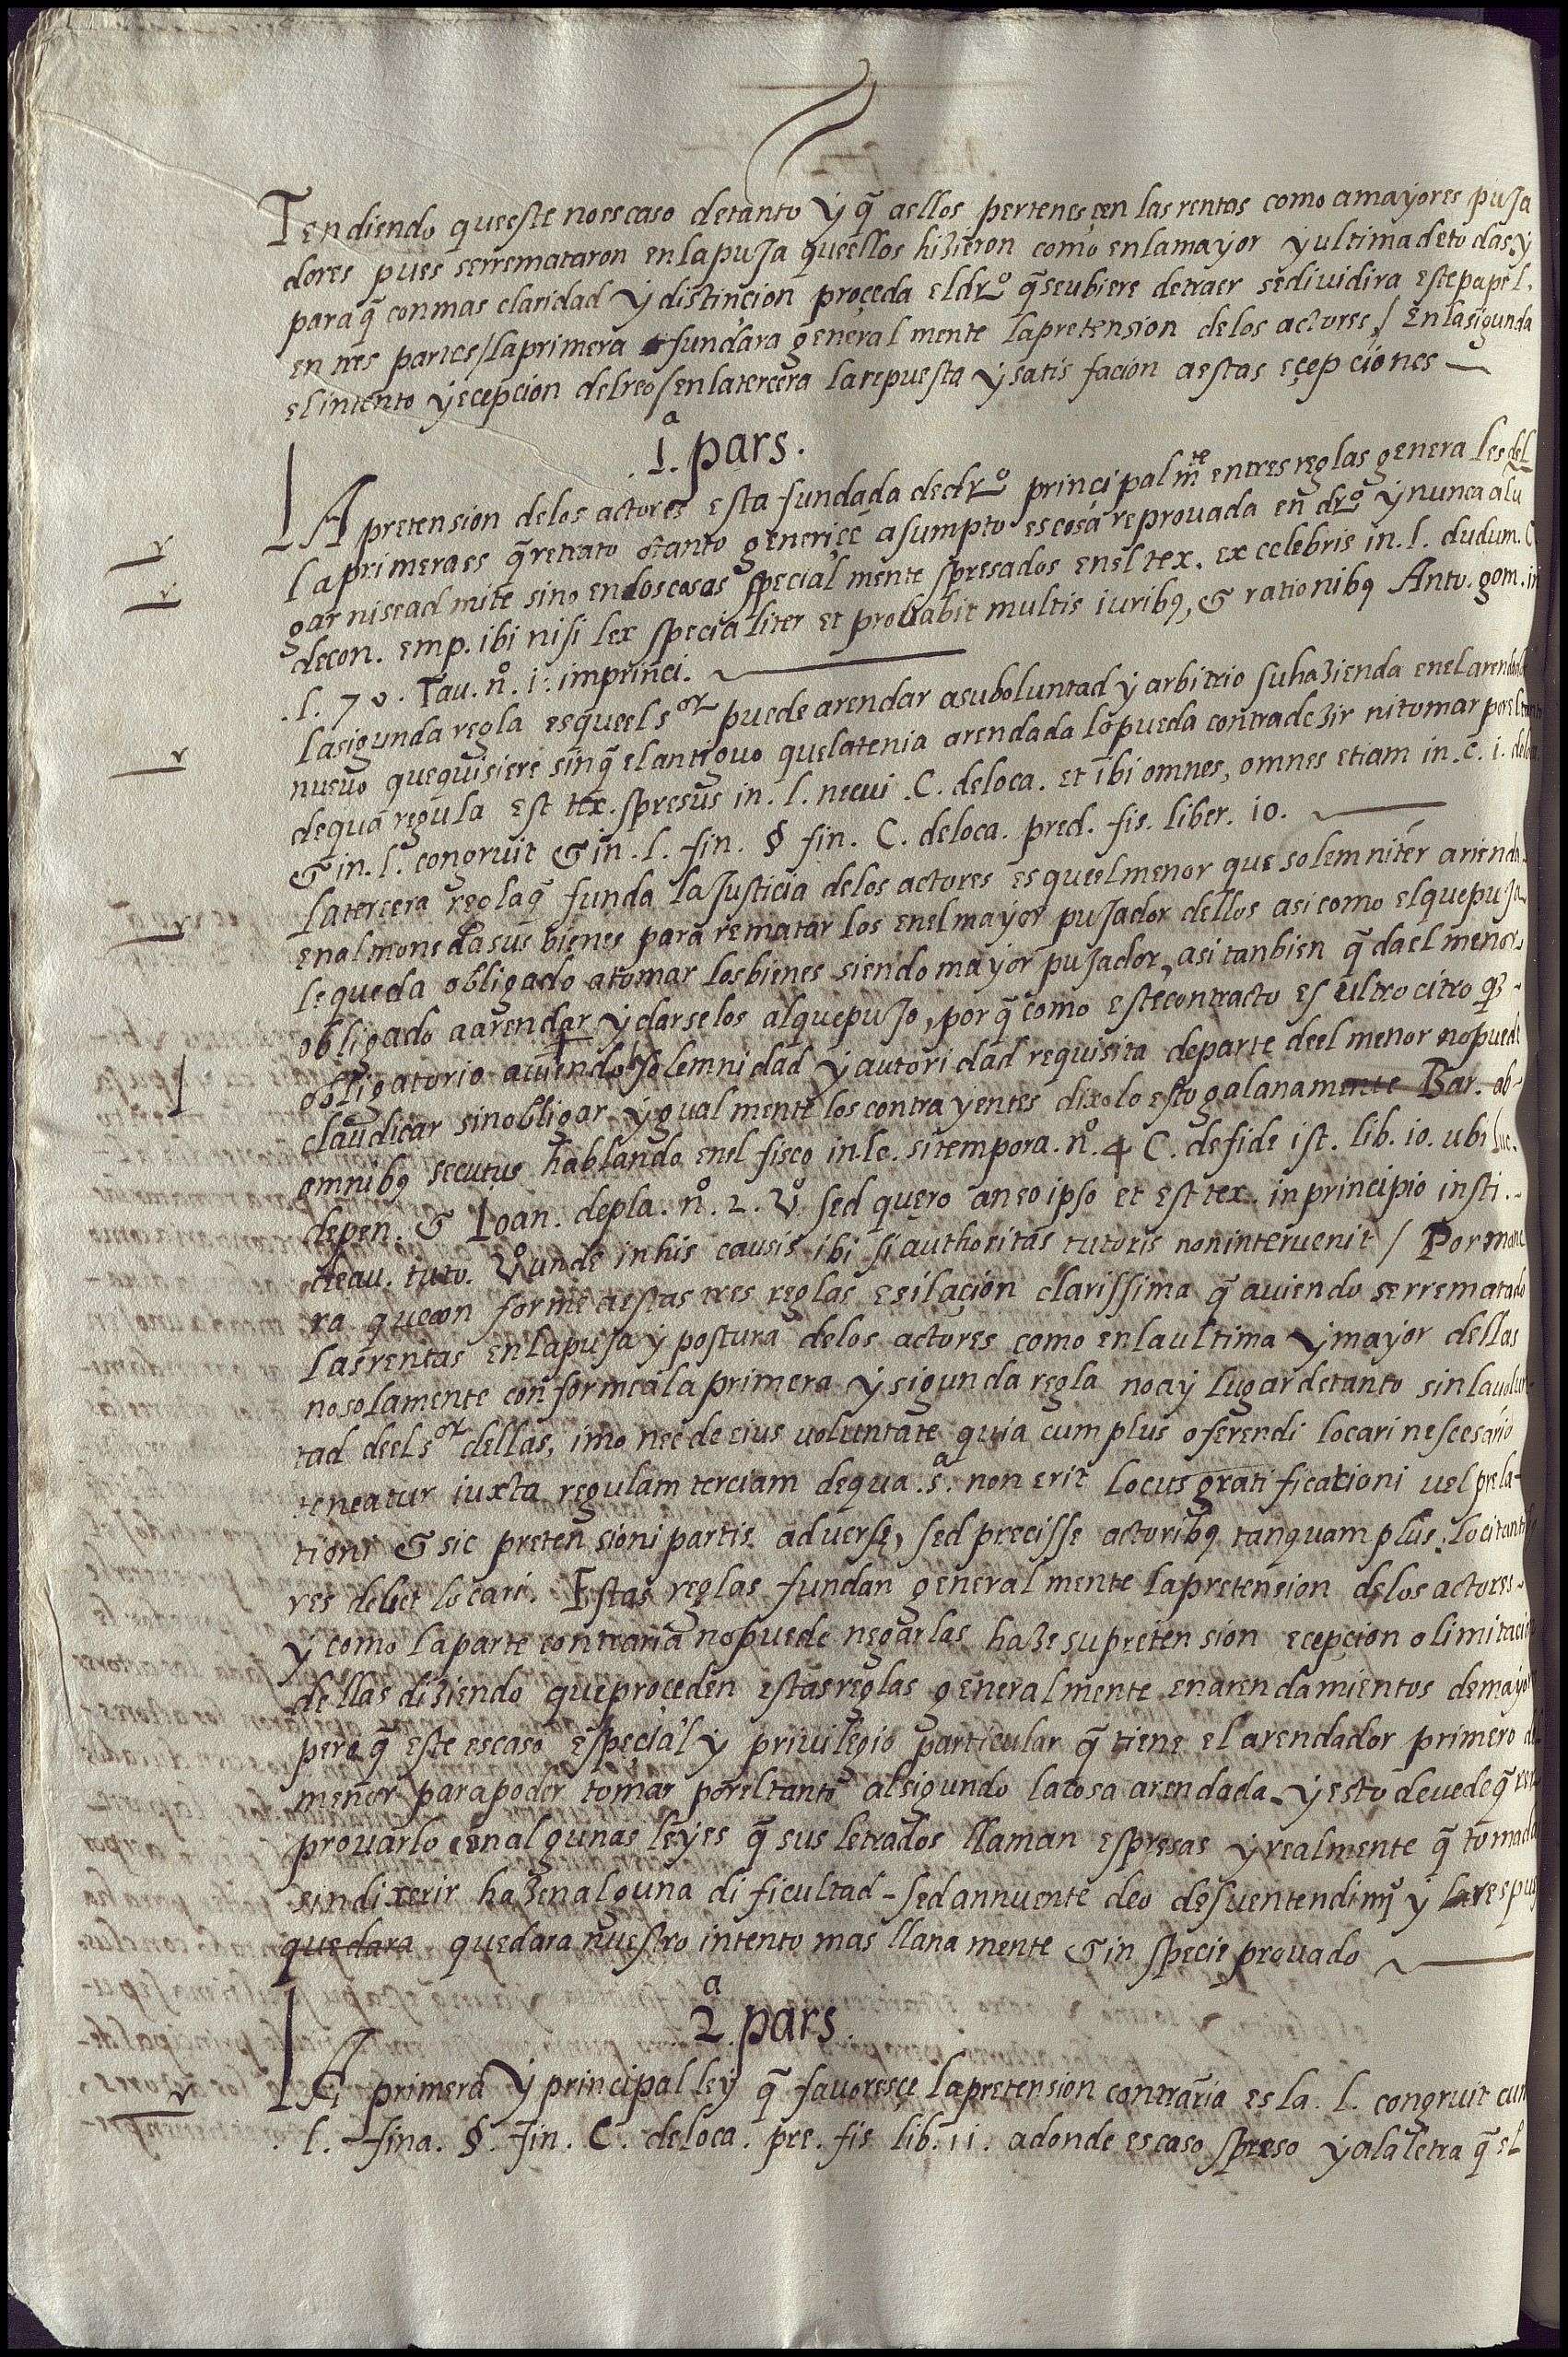 Tendiendo que este no es caso de tanto y q̃ a ellos pertenesçen las rentas como a mayores puja
dores pues se rremataron en la puja que ellos hizieron como en la mayor y ultima de todas, y
para q̃ con mas claridad y distinçion proçeda el drº q̃ se ubiere de traer se dividira este papel.
en tres partes / la primera fundara general mente la pretension de los actores / En la sigunda
el intento y ecepçion del reo / en la tercera la repuesta y satis façion a estas eçepçiones
.1.ª pars.
LA pretension de los actores esta fundada de drº principalmte en tres reglas generales del
la primera es q̃ retrato o tanto genericẽ asumpto es cosa reprovada en drº y nunca a lu
gar ni se ad mite sino en dos casos special mente spresados en el tex. ex celebris in. l. dudum. C
de con. emp. ibi nisi lex specialiter et probabit multis iuribꝰ, & rationibꝰ Anto. gom. in
.l. 70. Tau. nº. 1. imprinci.
la sigunda regla es que el sor puede arendar a su boluntad y arbitrio su hazienda en el arendador
nuevo que quisiere sin q̃ el antiguo que la tenia arendada lo pueda contradezir ni tomar por el tanto
de qua regula est tex. spresus in. l. ne cui .C. de loca. et ibi omnes, omnes etiam in. c. 1. de loca
& in. l. congruit & in. l. fin. § fin. C. de loca. pred. fis. liber. 10.
la tercera regla q̃ funda la justicia de los actores es que el menor que solemniter arienda
en almoneda sus bienes para rematar los en el mayor pujador dellos asi como el que puja
le queda obligado a tomar los bienes siendo mayor pujador, asi tanbien q̃da el menor
obligado a arendar y darselos al que pujo, por q̃ como este contracto es ultro citro q3
obligatorio aviendo solemnidad y autoridad requisita de parte de el menor no puede
claudicar sin obligar ygual mente los contrayentes dixolo esto galanamente Bar. ab
omnibꝰ secutus hablando en el fisco in le. si tempora. nº. 4 C. de fide ist. lib. 10. ubi luc.
de pen. & Ioan. de pla. nº. 2. vº sed quero an eo ipso et est tex. in principio insti.
de au. tuto. vº unde in his causis ibi si authoritas tutoris non intervenit / Por mane
ra que con forme a estas tres reglas es ilaçion clarissima q̃ aviendo se rrematado
las rentas en la puja y postura de los actores como en la ultima y mayor dellas
no solamente con forme a la primera y sigunda regla no ay lugar de tanto sin la volun
tad de el sor dellas, imo nec de eius voluntate quia cum plus oferendi locari nescesario
teneatur iuxta regulam terciam de qua .s.ª non erit locus gratificationi vel prela-
tioni & sic pretensioni partis adverse, sed precisse actoribꝰ tanquam plus. locitanti
res debet locari. Estas reglas fundan general mente la pretension de los actores
y como la parte contraria no puede negarlas haze su pretension ecepçion o limitacion
dellas diziendo que proçeden estas reglas generalmente en arendamientos de mayor
pero q̃ este es caso espeçial y privilegio particular q̃ tiene el arendador primero del
menor para poder tomar por el tanto al sigundo la cosa arendada. y esto deve de q̃rer
provarlo en algunas leyes q̃ sus letrados llaman espresas y realmente q̃ tomada
sin dixerir hazen alguna dificultad - sed annuente deo y la respu
quedara quedara nuestro intento mas llana mente & in specie provado
2.ª pars.
LA primera y principal ley q̃ favoresçe la pretension contraria es la. l. congruit cum
. l. fina. §. fin. C. de loca. pre. fis lib. 11. adonde es caso spreso y a la letra q̃ el